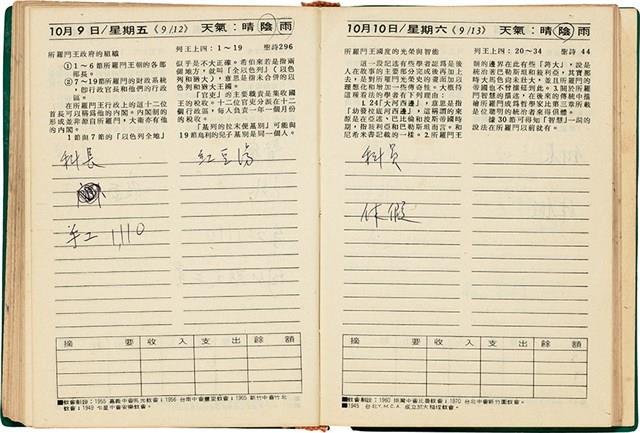 10月9日/星期五《9/12》 天氣:晴 陰 雨
所羅門王政府的組織
列王上四:1~19 聖詩296
①1~6節所羅門王朝的各部
部長。
②7~19節所羅門的財政系統
,即行政官長和他們的行政
區。
在所羅門王行政上的這十二位
首長可以稱爲他的內閣。內閣制的
形成並非源自所羅門,大衛亦有他
的內閣。
1節與7節的「以色列全地」
似乎是不大正確。希伯來若是指兩
個地方,就叫「全以色列」(以色
列和猶大),意思是指未合併的以
色列和猶大王國。
「官吏」的主要職責是要收國
王的稅收。十二位官吏分派在十二
個行政區,每人負責一年一個月份
的稅收。
「基列的拉末便基別」可能與
19節烏利的兒子基別是同一個人。
科長
紅豆湯
手工 1,110
摘要 收入 支出 餘額
10月10日/星期六《9/13》 天氣:晴 陰 雨
所羅門王國度的光榮與智能
列王上四:20~34 聖詩 44
這一段記述有些學者認爲是後
人在故事的主要部分完成後再加上
去,是對所羅門光榮史的畫面加以
理想化和增加一些傳奇性。大概持
這種看法的學者有下列理由:
1. 24「大河西邊」,意思是指
「幼發拉底河西邊」,這稱謂的來
源是在亞述、巴比倫和波斯帝國時
期,指敍利亞和巴勒斯坦而言。和
尼希米書記載的一樣。2.所羅門王
朝的邊界在此有些「誇大」,說是
統治着巴勒斯坦和敍利亞,其實那
時大馬色尚未壯大,並且所羅門的
帝國也不曾擴延到此。3.關於所羅
門智慧的描述,在後來的傳統中描
繪所羅門成爲哲學家比第三章所載
是位聰明的統治者來得倶體。
據30節可得知「智慧」一詞的
說法在所羅門以前就有。
科員
休假
摘要 收入 支出 餘額